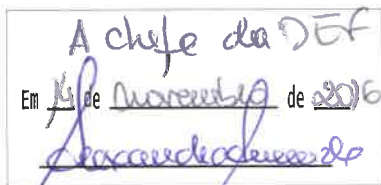 A chefe da DEF
Em 14 de novembro de 2016